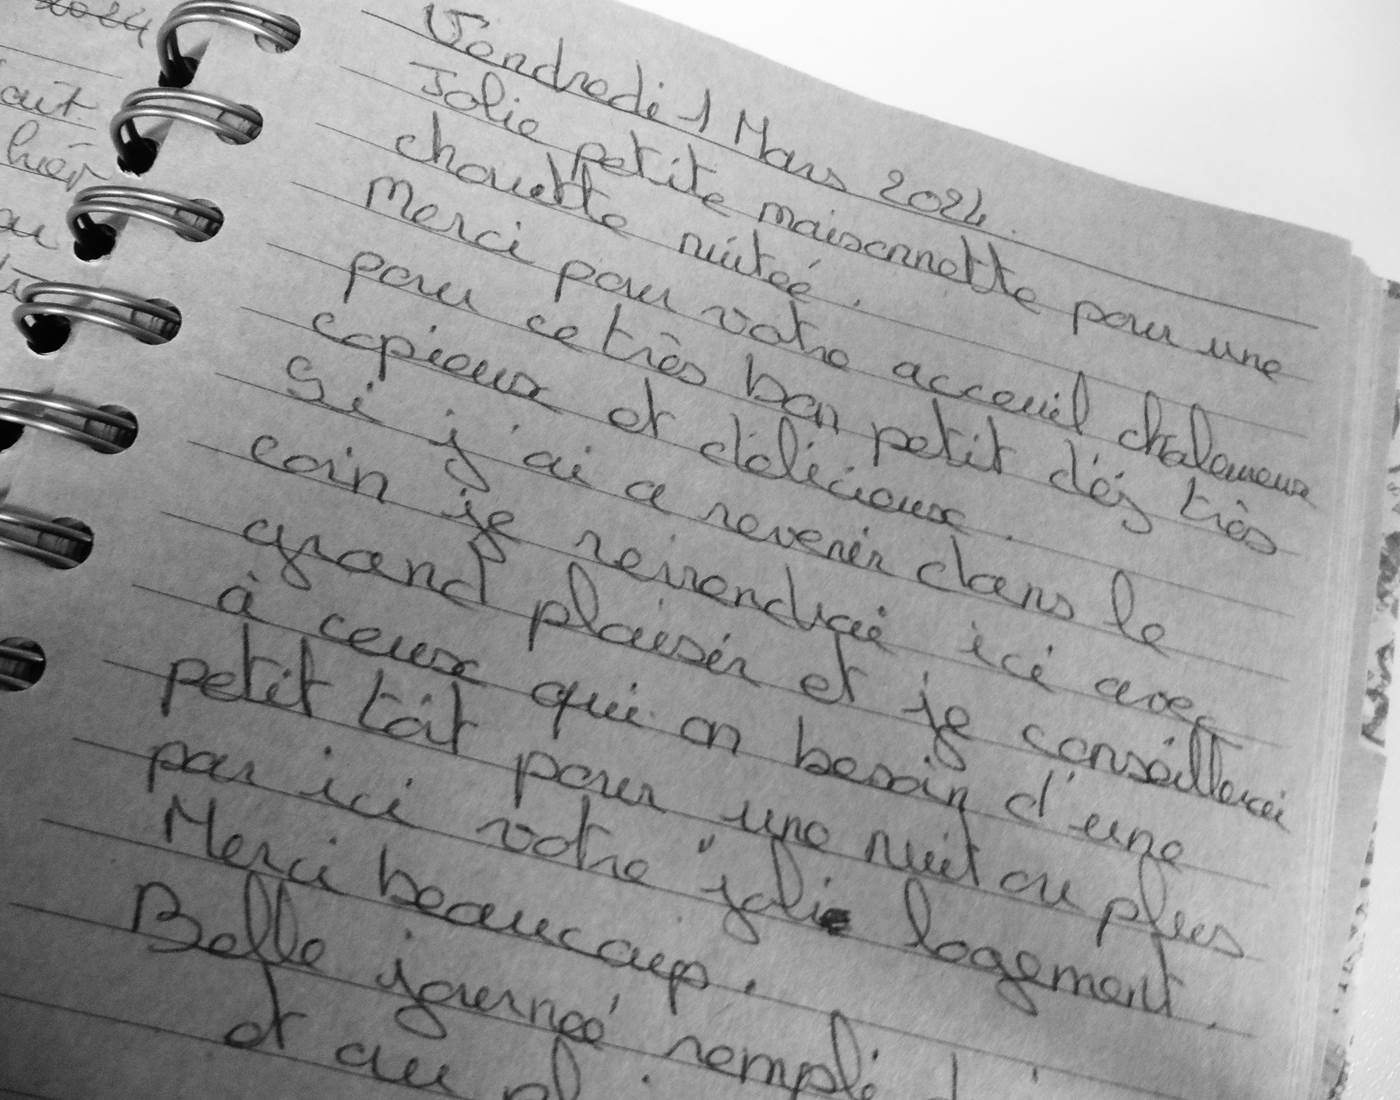 2024
aut
hier
au
Vendredi 1 Mars 2024.
Jolie petite maisonnette pour une
chouette nuiteé.
Merci pour votre acceuil chaleureux
pour ce très bon petit déj très
copieux et délicieux.
Si j'ai a revenir dans le
coin je reirendrai ici avec
grand plaisir et je conseillerai
à ceux qui on besoin d'une
petit toit pour une nuit ou plus
par ici votre "jolie logement.
Merci beaucoup.
Belle journeé rempli
et au